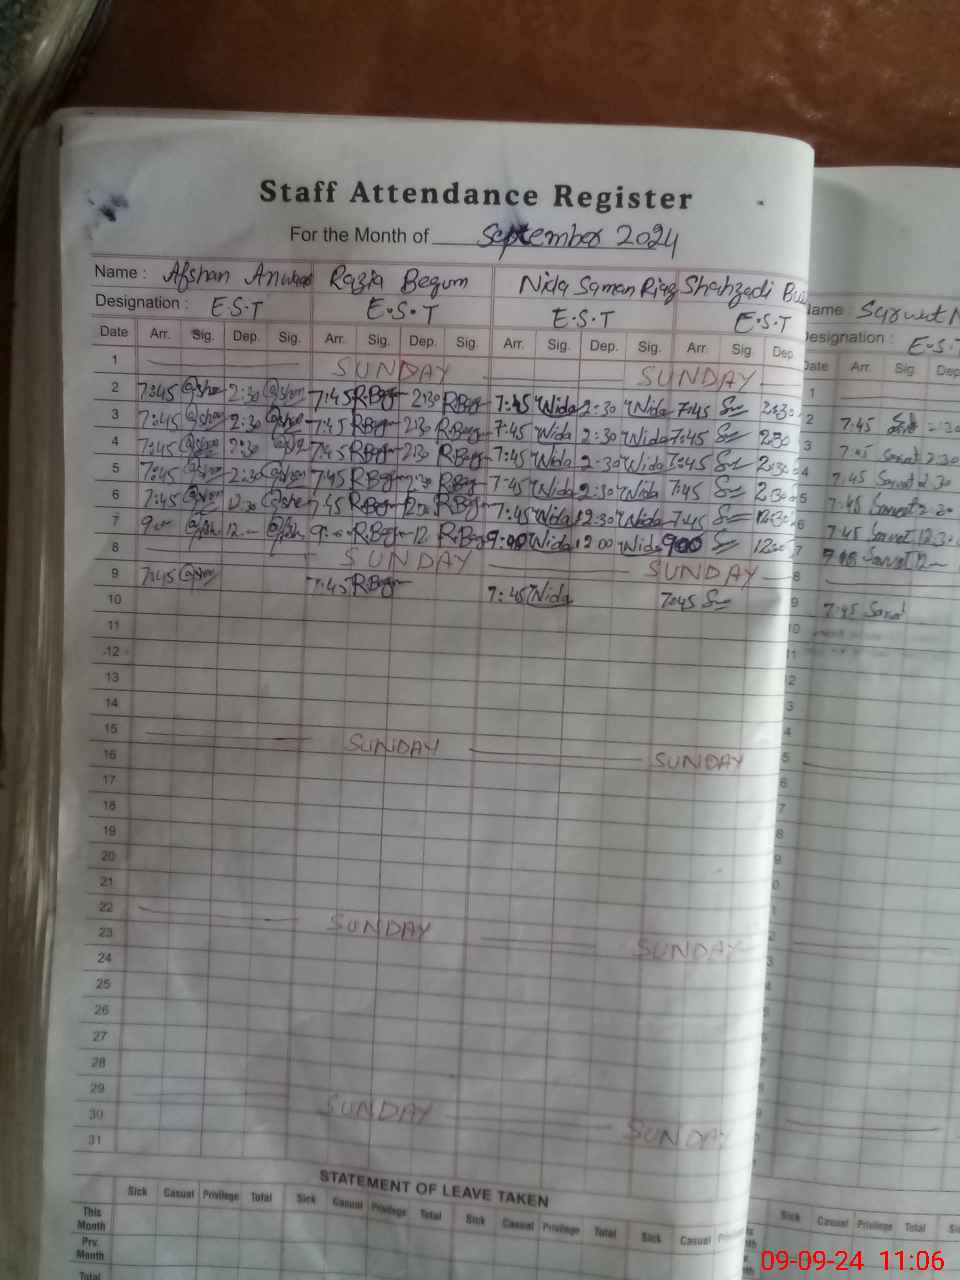 Staff Attendance Register
For the Month of September 2024
Name : Afshan Anwar Razia Begum Nida Saman Riaz Shahzadi
Designation : E.S.T E.S.T E.S.T E.S.T
Date Arr. Sig. Dep. Sig. Arr. Sig. Dep. Sig. Arr. Sig. Dep. Sig. Arr. Sig. Dep.
1 SUNDAY SUNDAY
2 7:45 2:30 7:45 RBeg 2:30 RBeg 7:45 Nida 2:30 Nida 7:45 2:30
3 7:45 2:30 7:45 RBeg 2:30 RBeg 7:45 Nida 2:30 Nida 7:45 2:30
4 7:45 2:30 7:45 RBeg 2:30 RBeg 7:45 Nida 2:30 Nida 7:45 2:30
5 7:45 2:30 7:45 RBeg 2:30 RBeg 7:45 Nida 2:30 Nida 7:45 2:30
6 7:45 12:30 7:45 RBeg 12:30 RBeg 7:45 Nida 12:30 Nida 7:45 12:30
7 9:00 12 9:00 R.Beg 12 R.Beg 9:00 Nida 12:00 Nida 900 12:00
8 SUNDAY SUNDAY
9 7:45 7:45 RBeg 7:45 Nida 7:45
10
11
12
13
14
15 SUNDAY SUNDAY
16
17
18
19
20
21
22 SUNDAY SUNDAY
23
24
25
26
27
28
29 SUNDAY SUNDAY
30
31
STATEMENT OF LEAVE TAKEN
Sick Casual Privilege Total Sick Casual Privilege Total Sick Casual Privilege Total Sick Casual
This Month
Prv. Month
Total
Name :
Designation : E.S.T
Date Arr. Sig. Dep
1
2 7:45
3 7:45 Sarwat 2:30
4 7:45 Sarwat 2:30
5 7:45 Sarwat 2:30
6 7:45 Sarwat 12:30
7 Sarwat 12
8
9 7:45
10
11
Sick Casual Privilege Total
09-09-24 11:06